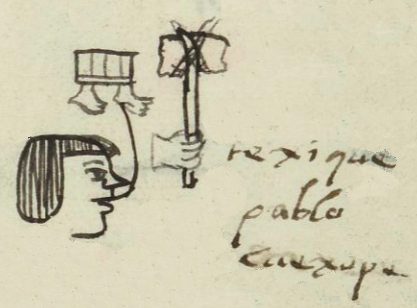 texique
pablo
cuexope